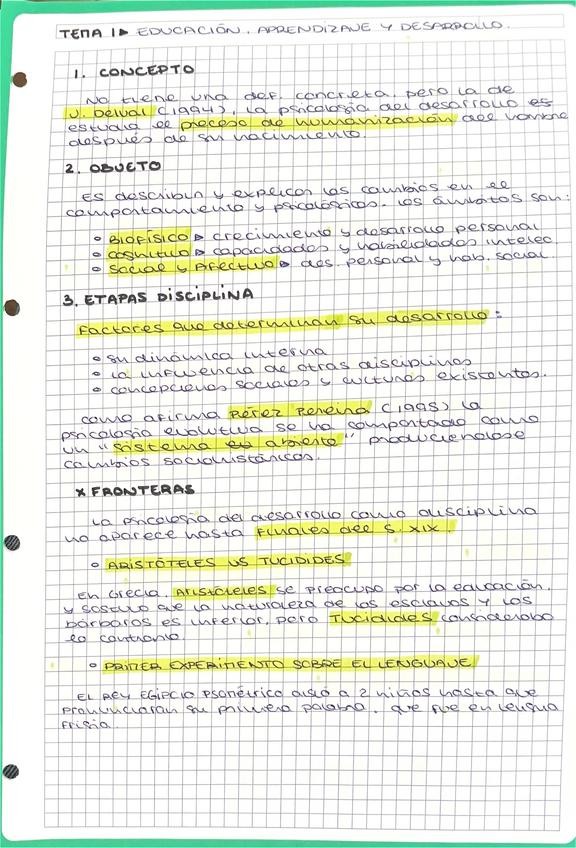 TEMA 1▶ EDUCACIÓN, APRENDIZAJE Y DESARROLLO.
1. CONCEPTO
No tiene una def. concreta, pero la de
J. Delval (1994), la psicología del desarrollo es
estudia el proceso de humanización del hombre
después de su nacimiento.
2. OBJETO
Es describir y explicar los cambios en el
comportamiento y psicológicos. Los ámbitos son:
• BIOFÍSICO ▶ crecimiento y desarrollo personal
• COGNITIVO ▶ capacidades y habilidades intelec.
• Social y Afectivo ▶ des. personal y hab. social.
3. ETAPAS DISCIPLINA
Factores que determinan su desarrollo:
• su dinámica interna
• la influencia de otras disciplinas
• concepciones sociales y culturas existentes.
Como afirma Pérez Pereira (1995) la
psicología evolutiva se ha comportado como
un "sistema en abierto" produciendose
cambios sociohistóricos.
x FRONTERAS
La psicología del desarrollo como disciplina
no aparece hasta finales del S. XIX.
• ARISTÓTELES VS TUCIDIDES
En Grecia, Aristóteles se preocupó por la educación,
y sostuvo que la naturaleza de los esclavos y los
bárbaros es inferior, pero Tucidides consideraba
lo contrario.
• PRIMER EXPERIMENTO SOBRE EL LENGUAJE
El REY EGIPCIO PSAMÉTRICO aisló a 2 niños hasta que
pronunciaran su primera palabra, que fue en lengua
frigia.